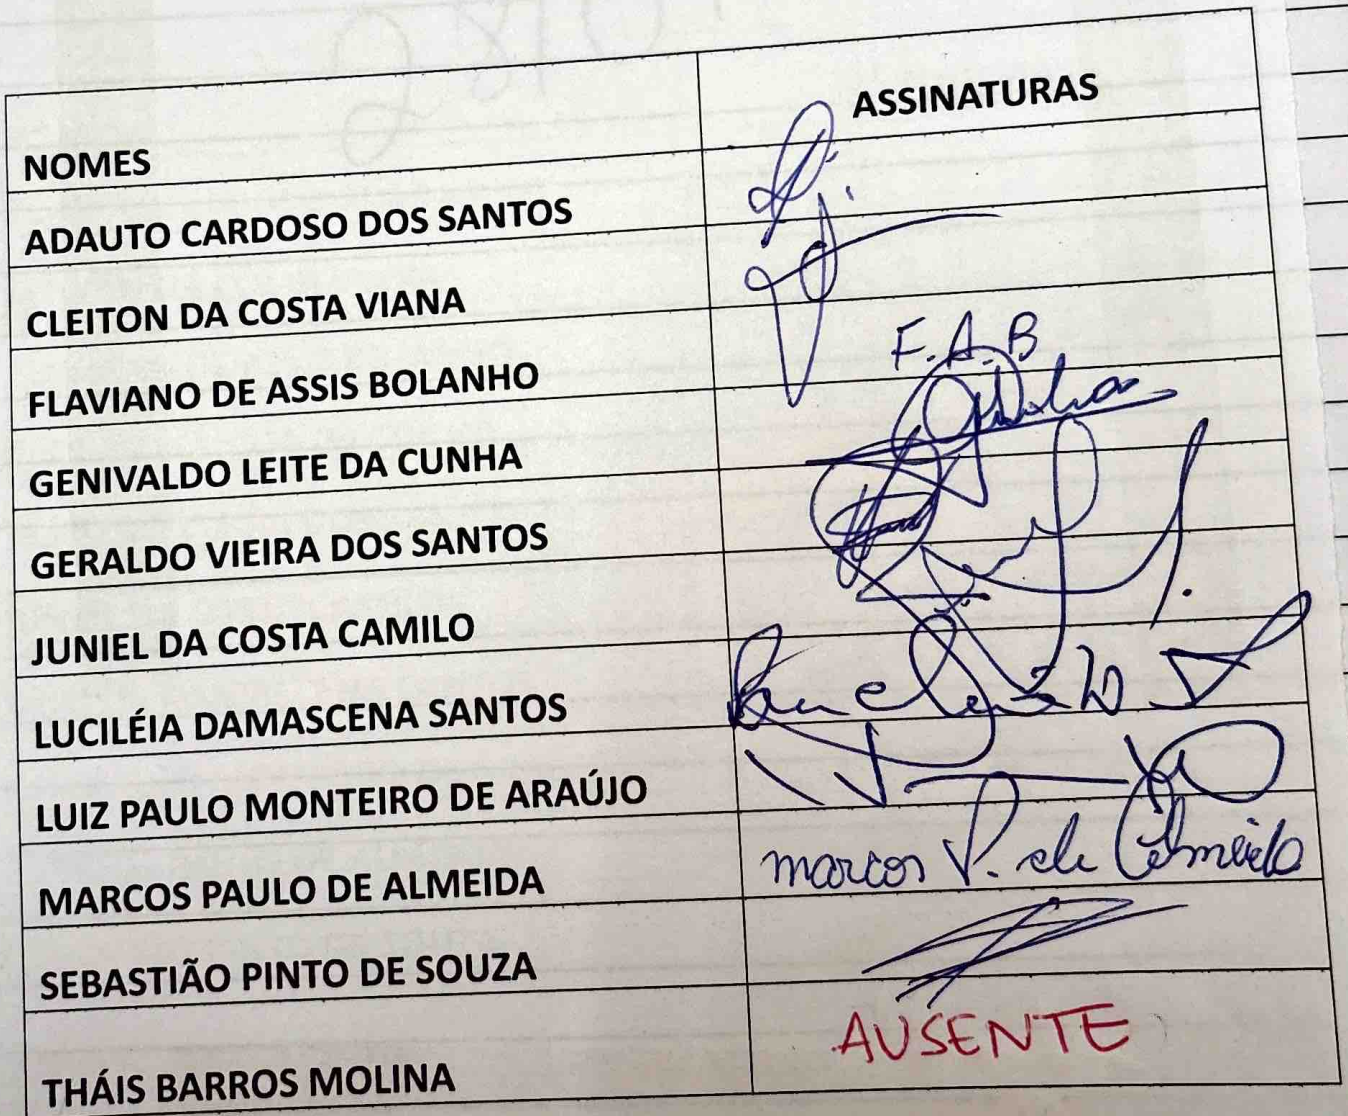 NOMES ASSINATURAS
ADAUTO CARDOSO DOS SANTOS
CLEITON DA COSTA VIANA
FLAVIANO DE ASSIS BOLANHO F.A.B
GENIVALDO LEITE DA CUNHA
GERALDO VIEIRA DOS SANTOS
JUNIEL DA COSTA CAMILO
LUCILÉIA DAMASCENA SANTOS
LUIZ PAULO MONTEIRO DE ARAÚJO
MARCOS PAULO DE ALMEIDA marcos P. de Almeida
SEBASTIÃO PINTO DE SOUZA
THÁIS BARROS MOLINA AUSENTE